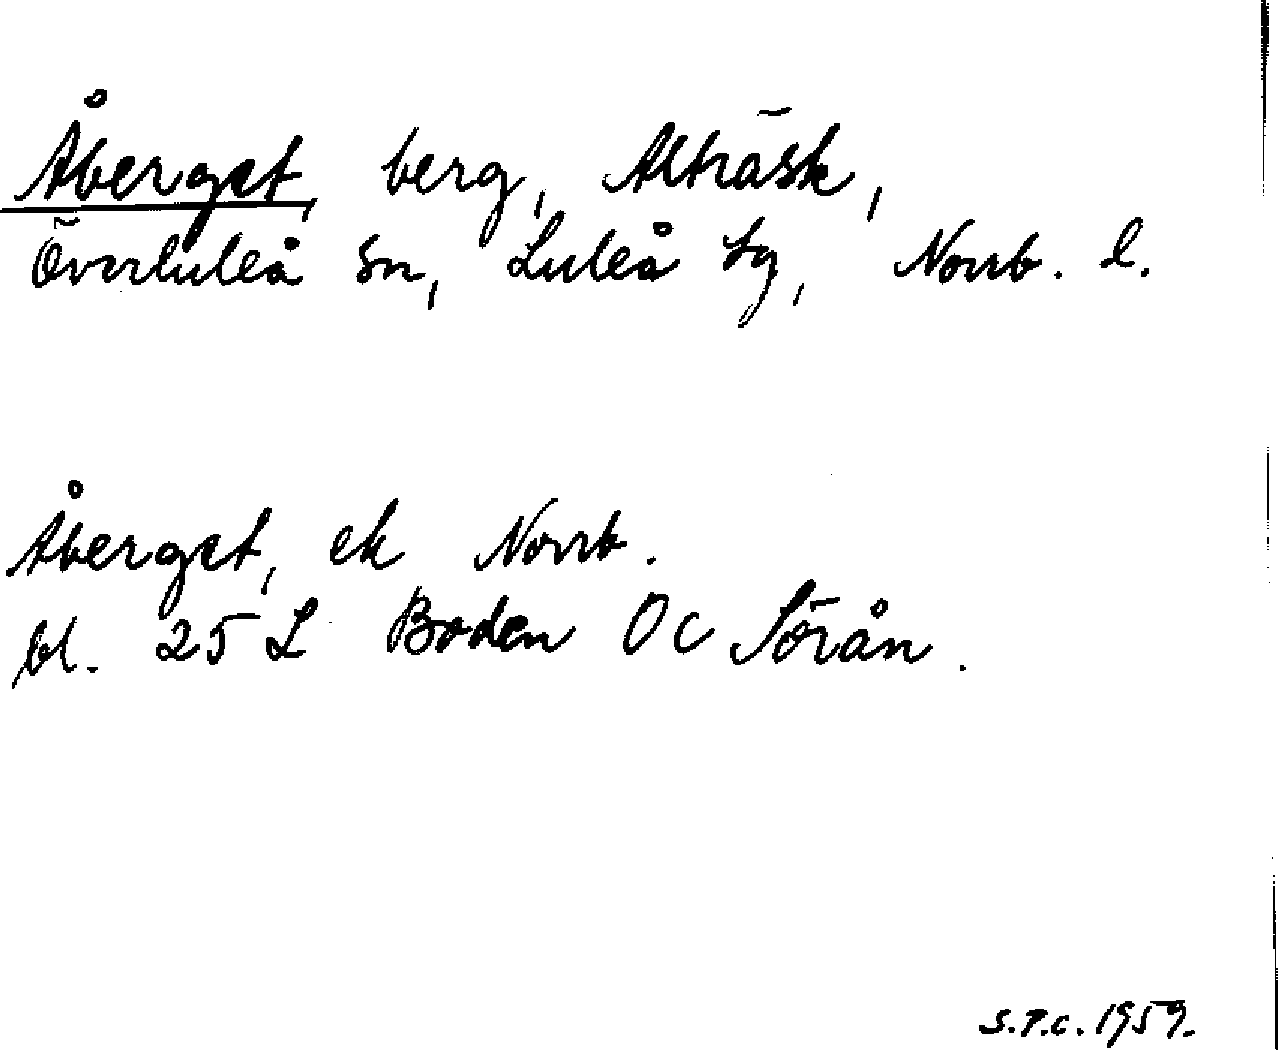 Åberget, berg, Alträsk,
Överluleå sn, Luleå tg, Norrb. l.
Åberget, ek Norrb.
bl. 25 L Boden 0c Sörån.
S.P.C. 1959.